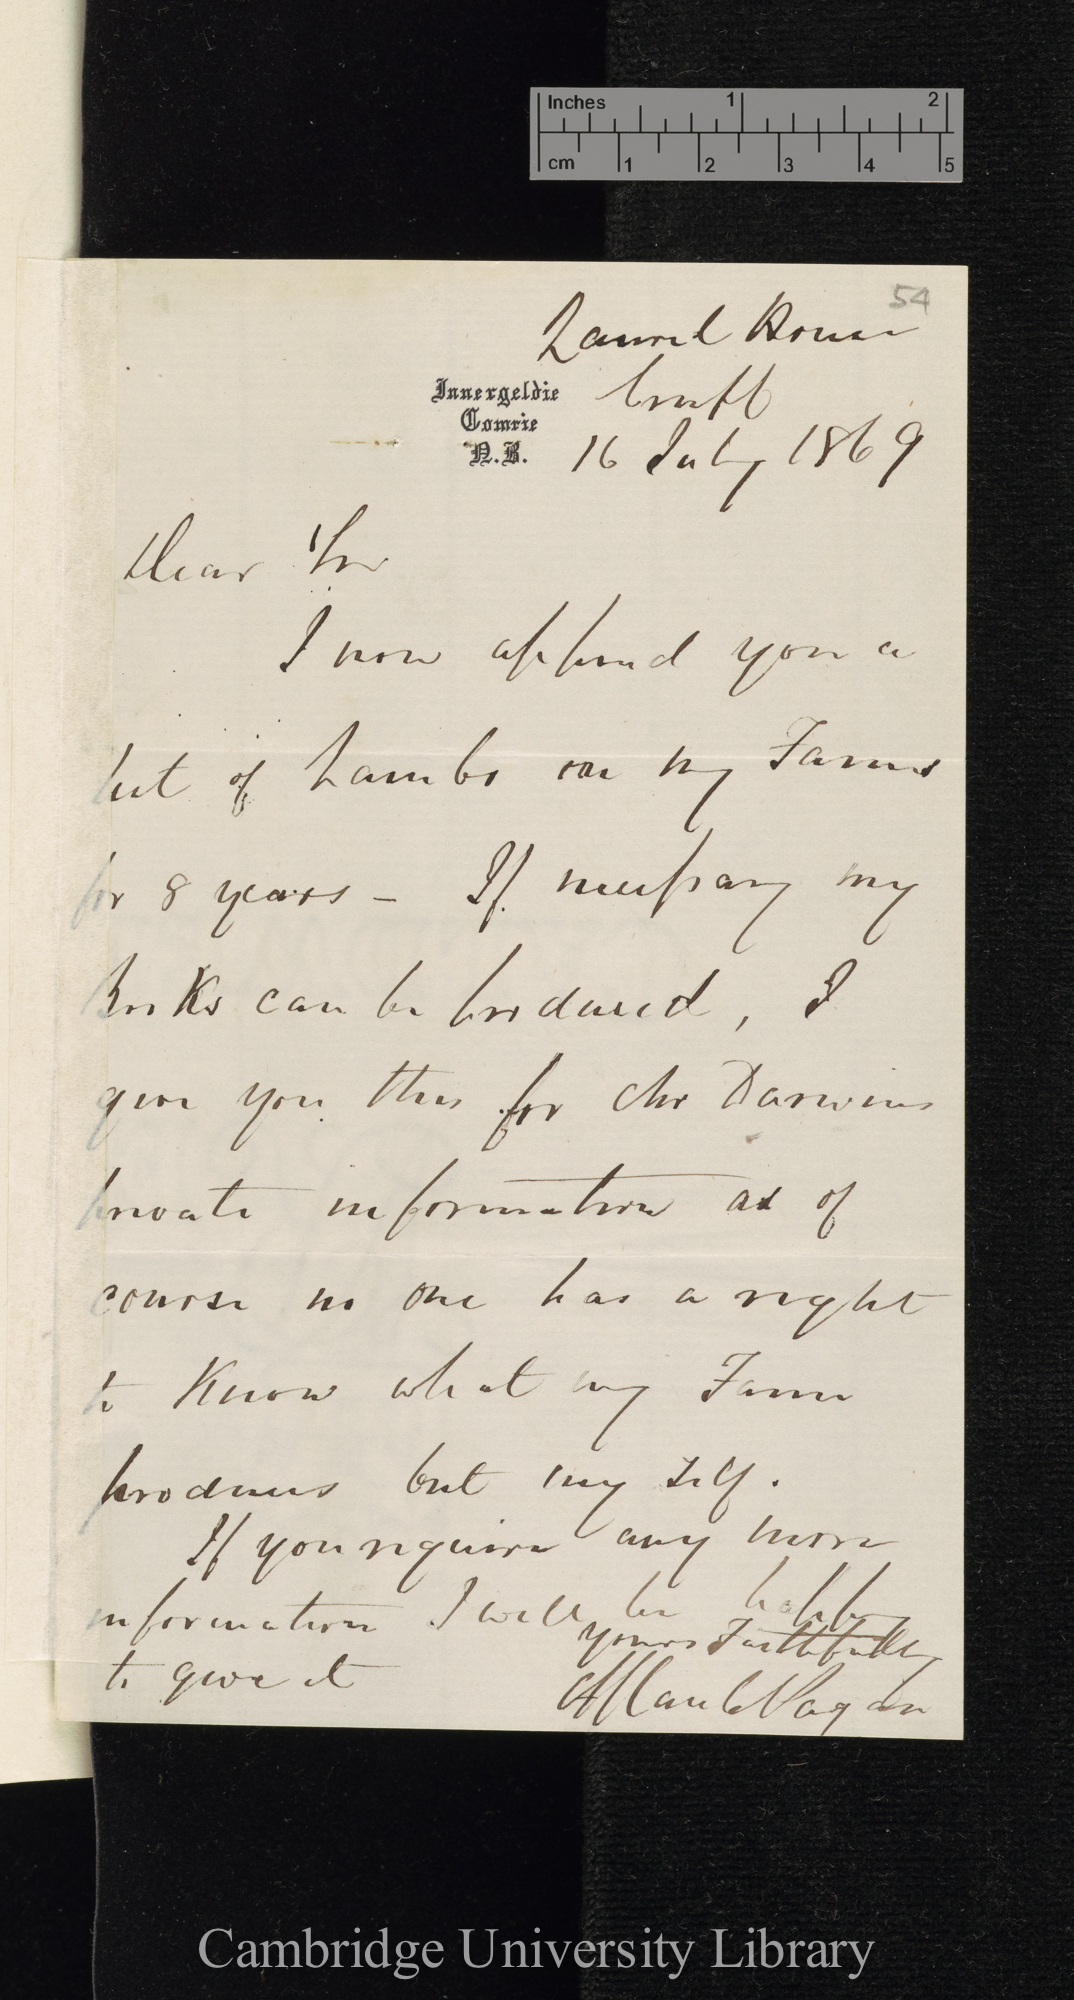 Inches 1 2
cm 1 2 3 4 5
54
Laurel House
Crieff
Innergeldie
Comrie
N.B.
16 July 1869
Dear Sir
I now append you a
list of Lambs on my Farms
for 8 years – If necessary my
Books can be produced, I
give you this for Mr Darwins
private information as of
course no one has a right
to Know what my Farm
produces but my self.
If you require any more
information I will be happy
to give it
yours Faithfully
Allan Pagan
Cambridge University Library